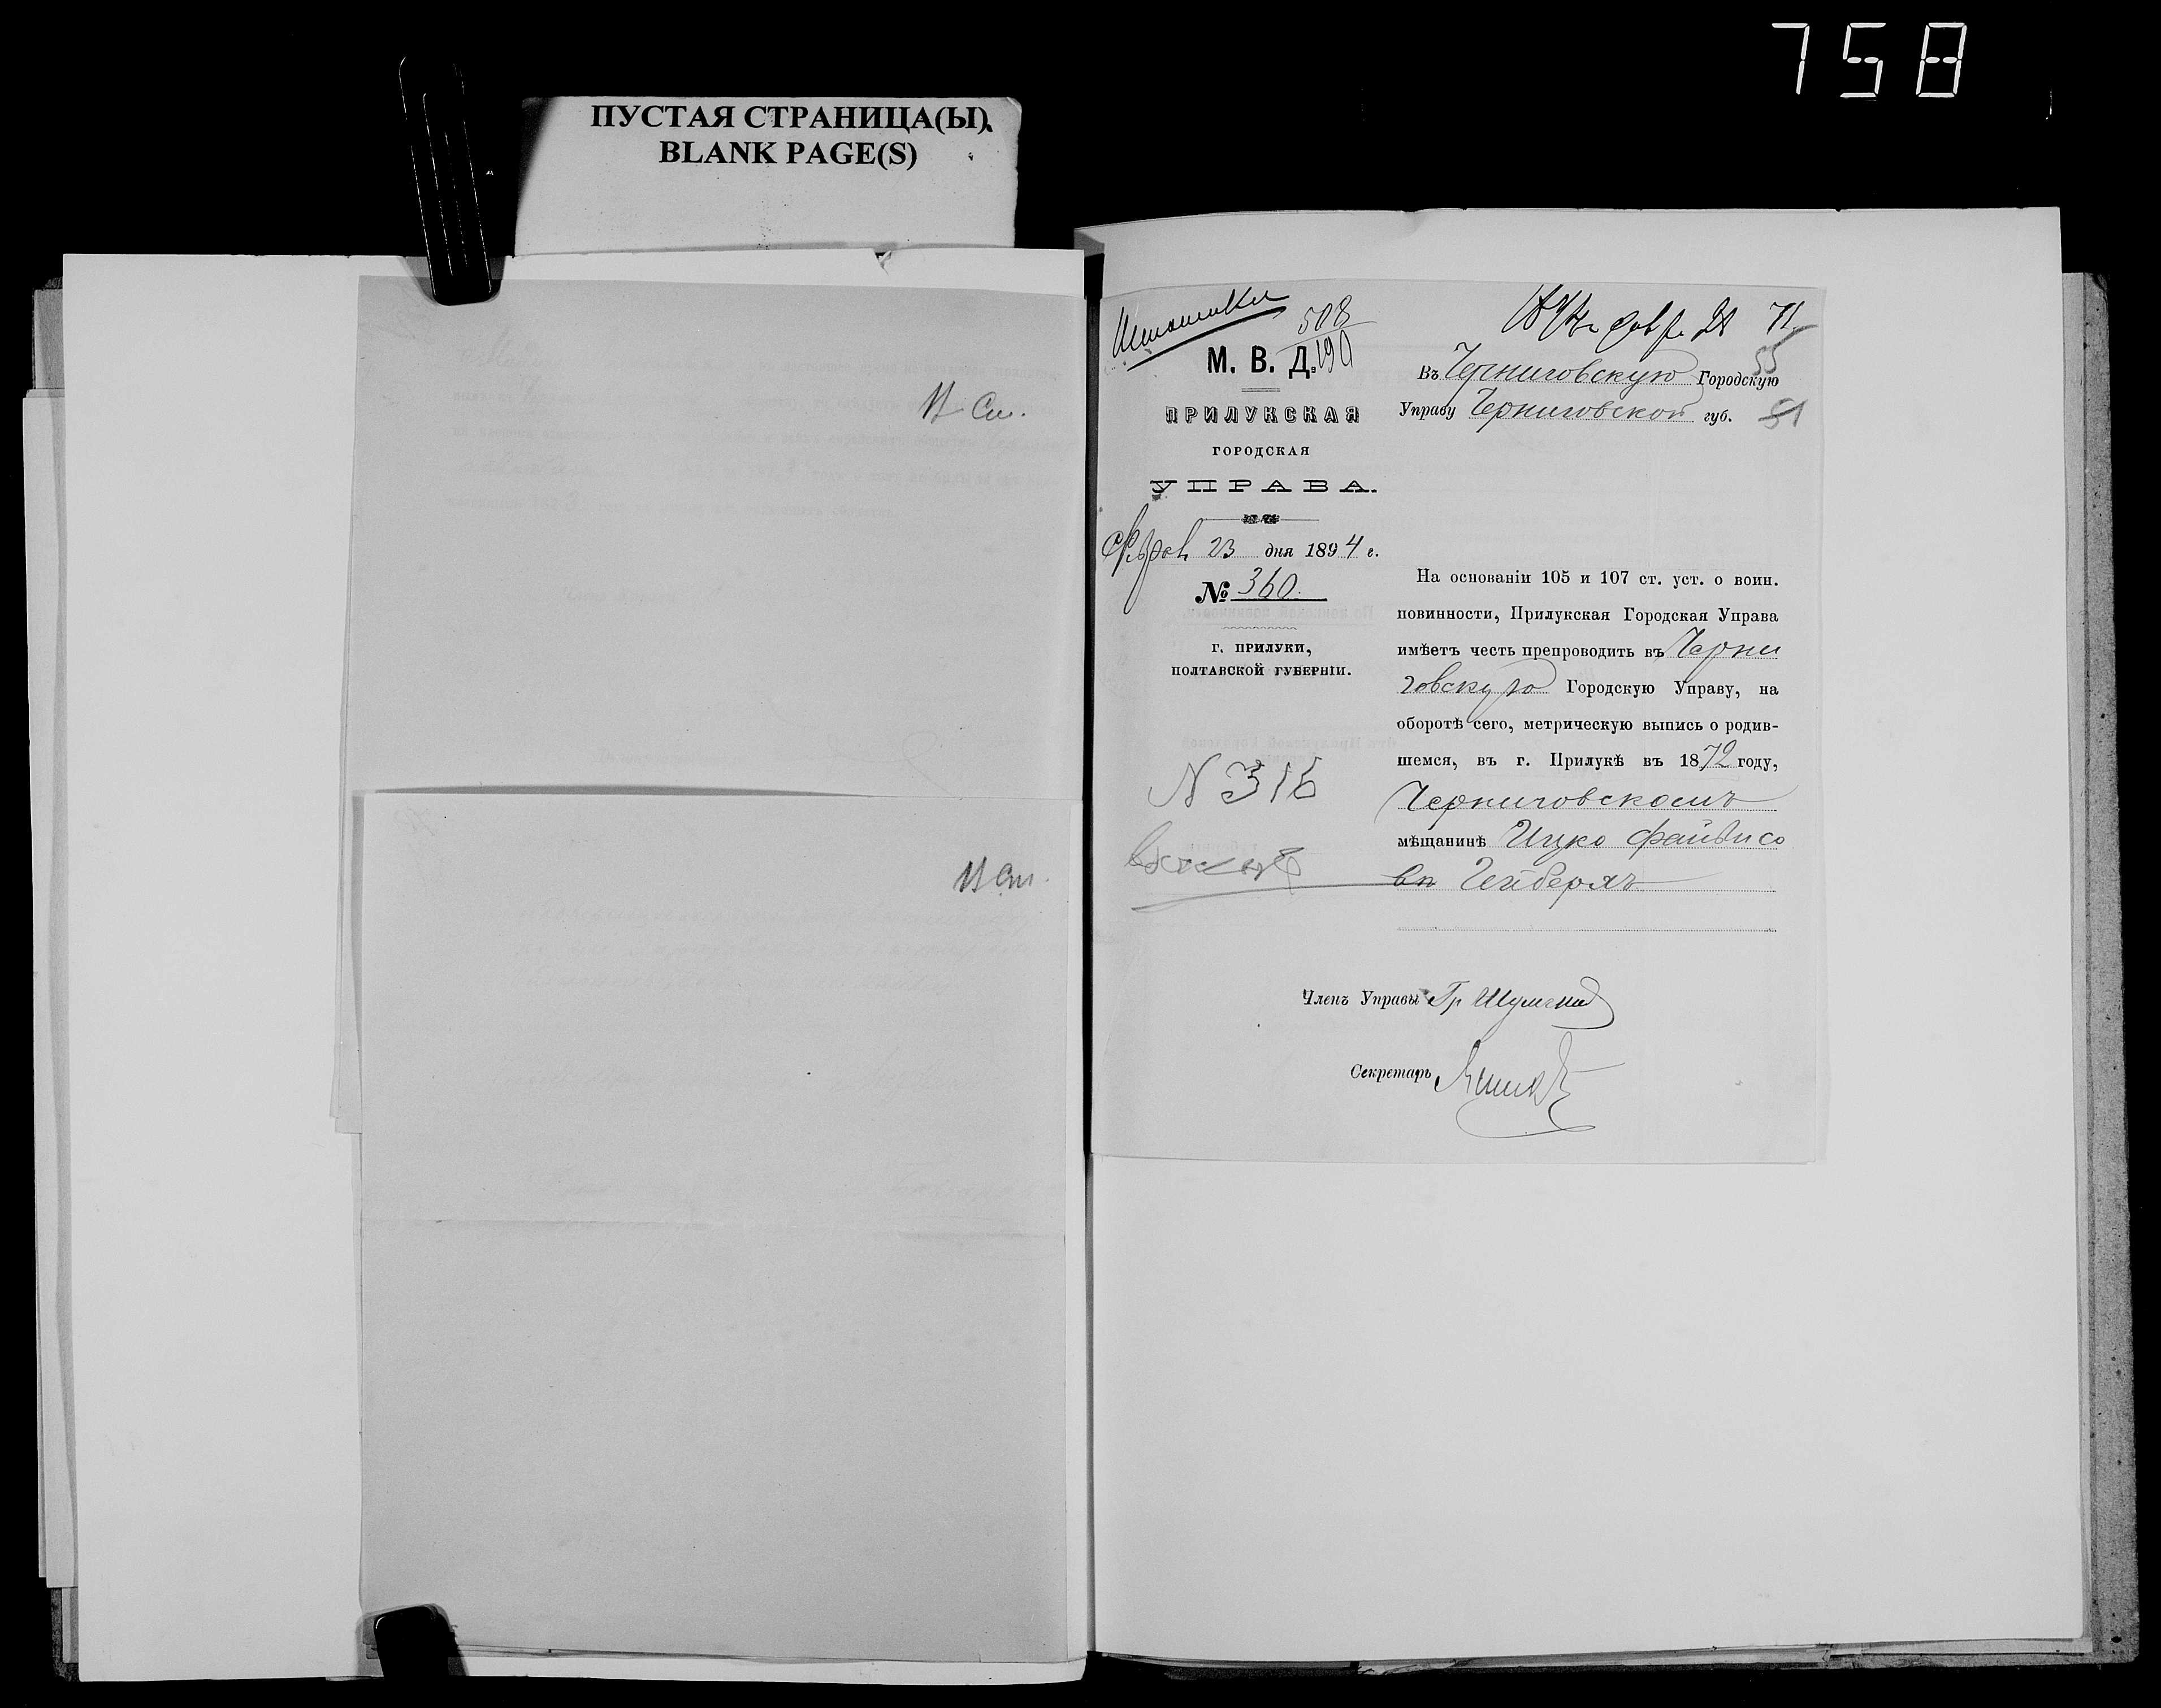 758
ПУСТАЯ СТРАНИЦА(Ы)
BLANK PAGE(S)
508
190
71
М. В. Д.
ПРИЛУКСКАЯ
ГОРОДСКАЯ
УПРАВА.
23 дня 1894 г.
№ 360.
г. ПРИЛУКИ,
ПОЛТАВСКОЙ ГУБЕРНІИ.
N 316
55
Въ Черниговскую Городскую
Управу Черниговской губ. 51
На основаніи 105 и 107 ст. уст. о воин.
повинности, Прилукская Городская Управа
имѣетъ честь препроводить въ Черни
говскую Городскую Управу, на
оборотѣ сего, метрическую выпись о родив-
шемся, въ г. Прилукѣ въ 1872 году,
Черниговскомъ
мѣщанинѣ Ицко Файвисо
въ
Членъ Управы Гр
Секретарь